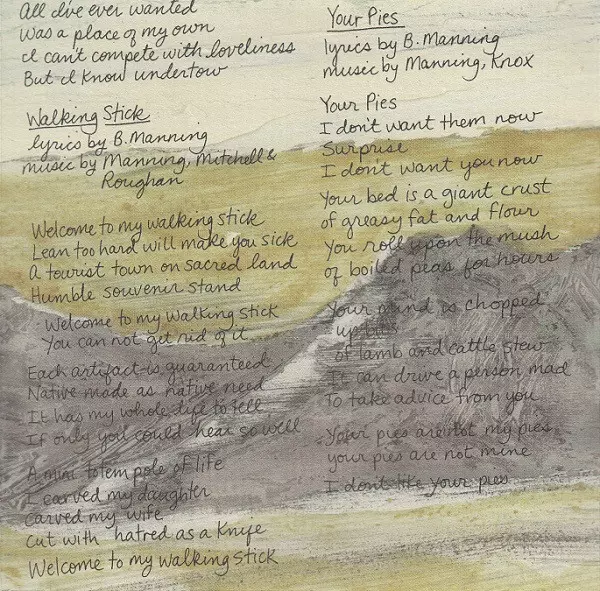 All I've ever wanted
Was a place of my own
I can't compete with loveliness
But I know undertow
Walking Stick
lyrics by B. Manning
music by Manning, Mitchell &
Roughan
Welcome to my walking stick
Lean too hard will make you sick
A tourist town on sacred land
Humble souvenir stand
Welcome to my walking stick
You can not get rid of it
Each artifact is guaranteed
Native made as native need
It has my whole life to tell
If only you could hear so well
A mini totem pole of life
I carved my daughter
carved my wife
cut with hatred as a Knife
Welcome to my walking stick
Your Pies
lyrics by B. Manning
music by Manning, Knox
Your Pies
I don't want them now
Surprise
I don't want you now
Your bed is a giant crust
of greasy fat and flour
You roll upon the mush
of boiled peas for hours
Your mind is chopped
up bits
of lamb and cattle stew
It can drive a person mad
To take advice from you
Your pies are not my pies
your pies are not mine
I don't like your pies